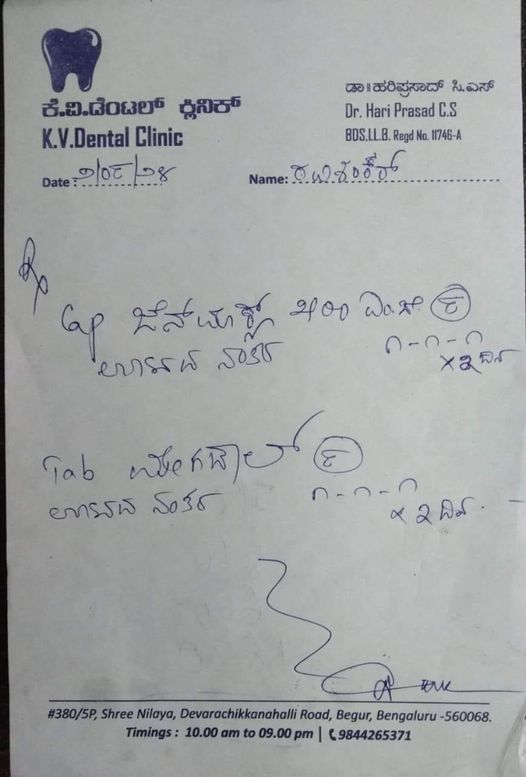 ಕೆ.ವಿ.ಡೆಂಟಲ್ ಕ್ಲಿನಿಕ್
K.V.Dental Clinic
ಡಾ॥ಹರಿಪ್ರಸಾದ್ ಸಿ.ಎಸ್
Dr. Hari Prasad C.S
BDS,LL.B. Regd No. 11746-A
Date : ೨/೦೯/೨೪
Name: ರವಿಶಂಕರ್
Cap ಜೆನ್‌ಮಾಕ್ಸ್ ೫೦೦ ಎಂ.ಜಿ. ೯
ಊಟದ ನಂತರ
೧-೧-೧
× ೩ ದಿನ
Tab ಮೇಗಡಾಲ್ ೯
ಊಟದ ನಂತರ
೧-೧-೧
× ೩ ದಿನ.
#380/5P, Shree Nilaya, Devarachikkanahalli Road, Begur, Bengaluru -560068.
Timings : 10.00 am to 09.00 pm | 9844265371